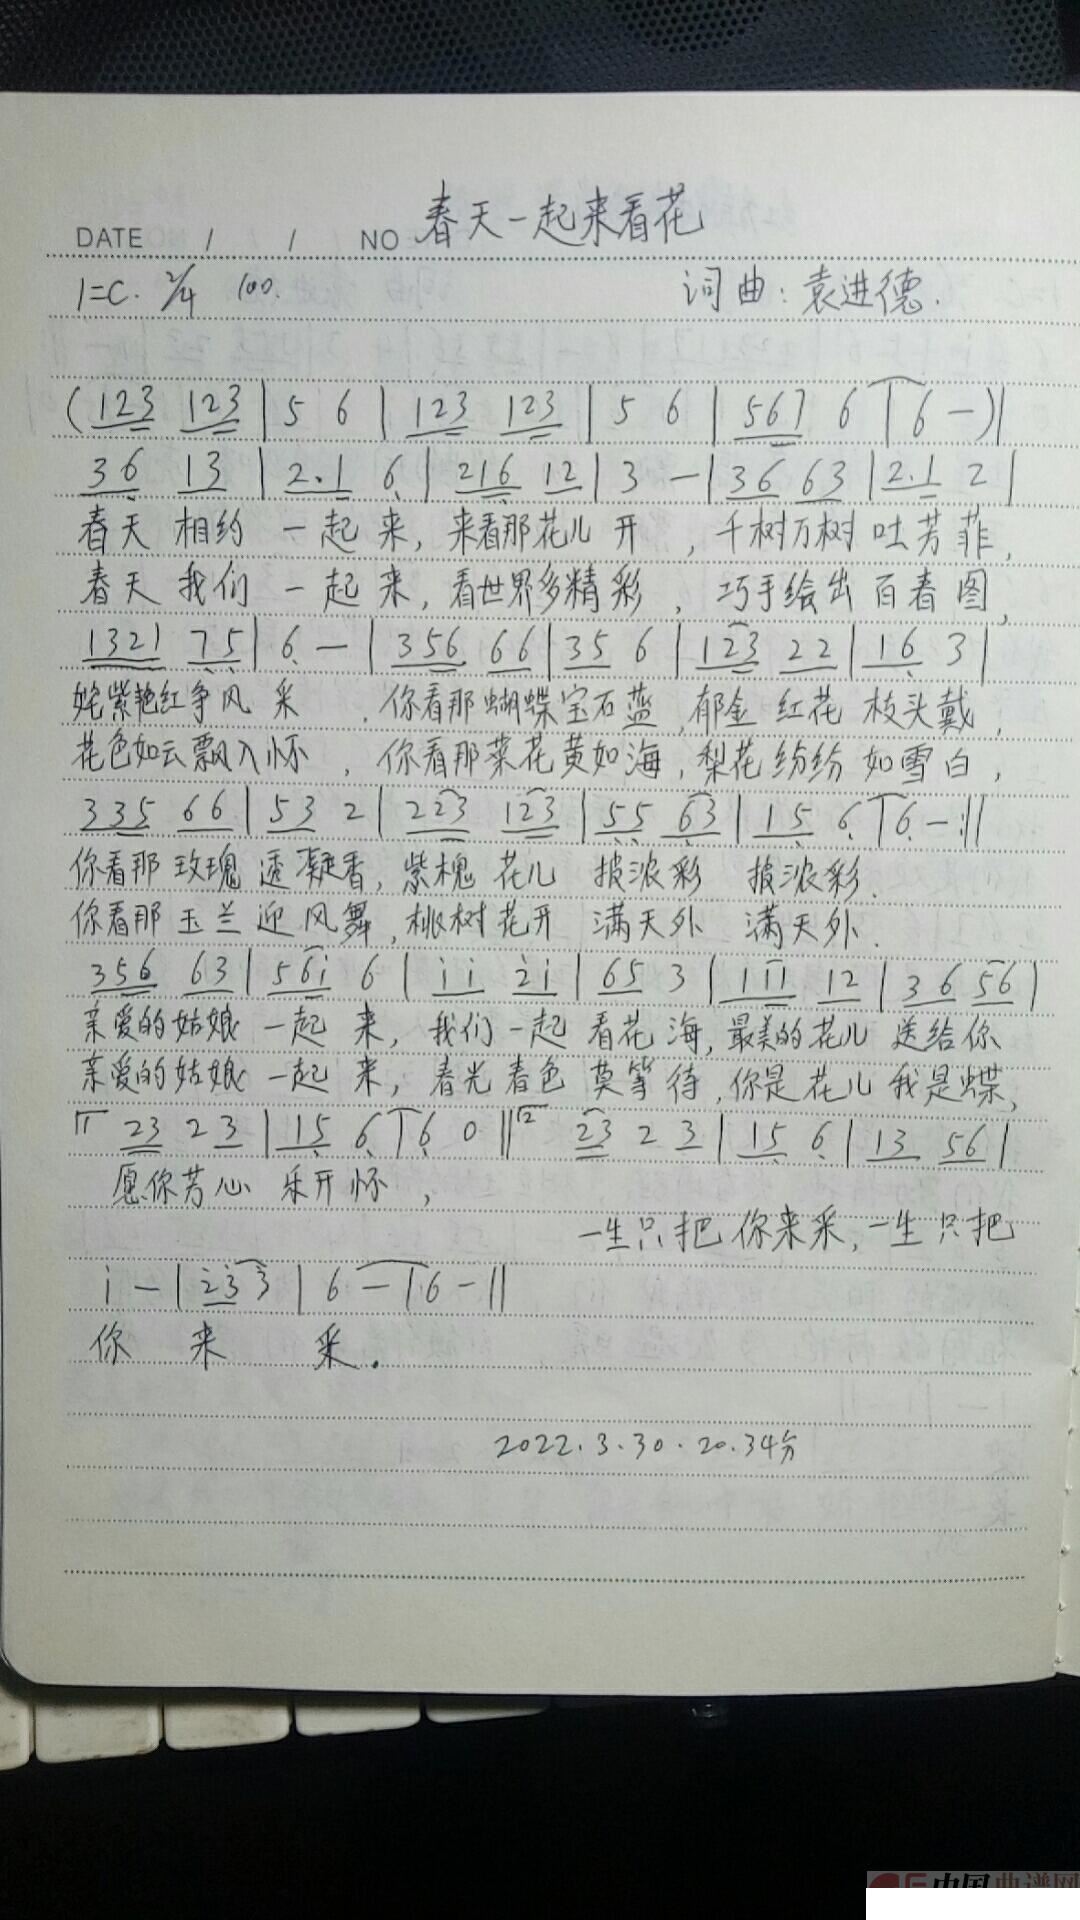 春天一起来看花
DATE / / NO
1=C. 2/4 100.
词曲: 袁进德.
(123 123 | 5 6 | 123 123 | 5 6 | 567 6 | 6 —) |
36 13 | 2.1 6 | 216 12 | 3 — | 36 63 | 2.1 2 |
春天 相约 一起 来, 来看那花儿 开 , 千树万树 吐芳菲,
春天 我们 一起 来, 看世界多精彩 , 巧手绘出 百春图,
1321 75 | 6 — | 356 66 | 35 6 | 123 22 | 16 3 |
姹紫艳红争风 采 , 你看那蝴蝶宝石蓝, 郁金 红花 枝头戴,
花色如云飘入怀 , 你看那菜花黄如海, 梨花纷纷 如雪白,
335 66 | 53 2 | 223 123 | 55 63 | 15 6 | 6 — :||
你看那 玫瑰 透凝香, 紫槐 花儿 披浓彩 披浓彩.
你看那 玉兰 迎风舞, 桃树花开 满天外 满天外.
356 63 | 56i 6 | ii 2i | 65 3 | 111 12 | 36 56 |
亲爱的姑娘 一起 来, 我们一起 看花海, 最美的花儿 送给你
亲爱的姑娘 一起 来, 春光春色 莫等待, 你是花儿我是蝶,
1 23 23 | 15 6 | 6 0 || 2 23 2 3 | 15 6 | 13 56 |
愿你芳心 乐开怀 ,
一生只把你来采, 一生只把
i — | 23 3 | 6 — | 6 — ||
你 来 采.
2022.3.30.20.34分
中国曲谱网